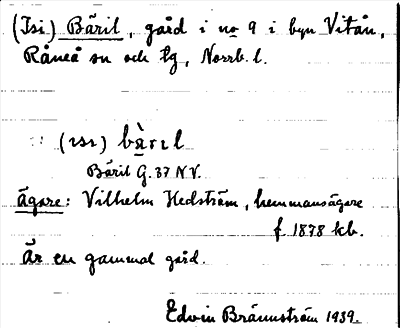 (Isi) Bäril, gård i no 9 i byn Vitån,
Råneå sn och tg, Norrb. l.
(ɪsɪ) bàrɪl
Bäril G. 37 N V.
Ägare: Vilhelm Hedström, hemmansägare
f. 1878 kb.
Är en gammal gård.
Edvin Brännström 1939.